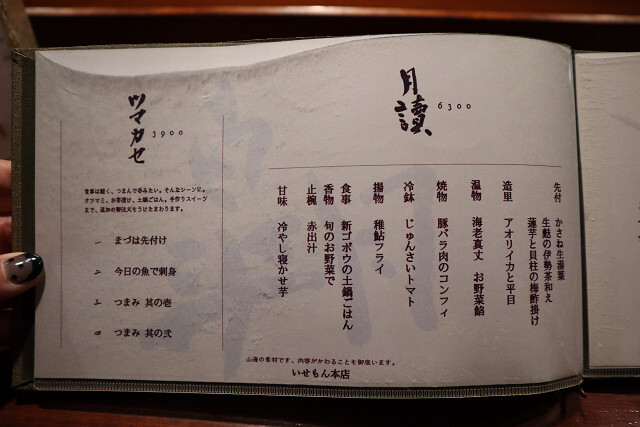 月讀
6300
先付 かさね生湯葉
生麩の伊勢茶和え
蓮芋と貝柱の梅酢掛け
造里 アオリイカと平目
温物 海老真丈 お野菜餡
焼物 豚バラ肉のコンフィ
冷鉢 じゅんさいトマト
揚物 稚鮎フライ
食事 新ゴボウの土鍋ごはん
香物 旬のお野菜で
止椀 赤出汁
甘味 冷やし寝かせ芋
ツマカセ
3900
食事は軽く、つまんで呑みたい。そんなシーンに。
オツマミ、お茶漬け、土鍋ごはん。手作りスイーツ
まで、追加の御注文をうけたまわります。
一 まづは先付け
二 今日の魚で刺身
三 つまみ 其の壱
四 つまみ 其の弐
山海の素材です、内容がかわることも御座います。
いせもん本店